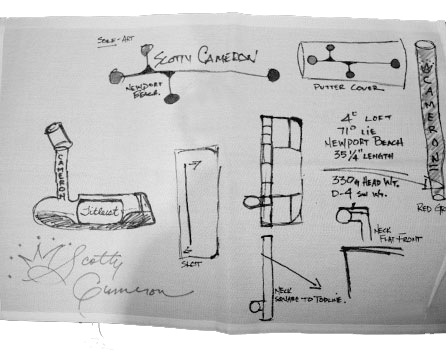 SCOTTY CAMERON
NEWPORT
BEACH.
PUTTER COVER
CAMERON
4° LOFT
71° LIE
NEWPORT BEACH
35 1/4" LENGTH
330g HEAD WT.
D-4 SW WT.
CAMERON
Titleist
SLOT
NECK
FLAT FRONT
NECK
SQUARE TO TOPLINE.
Scotty
Cameron